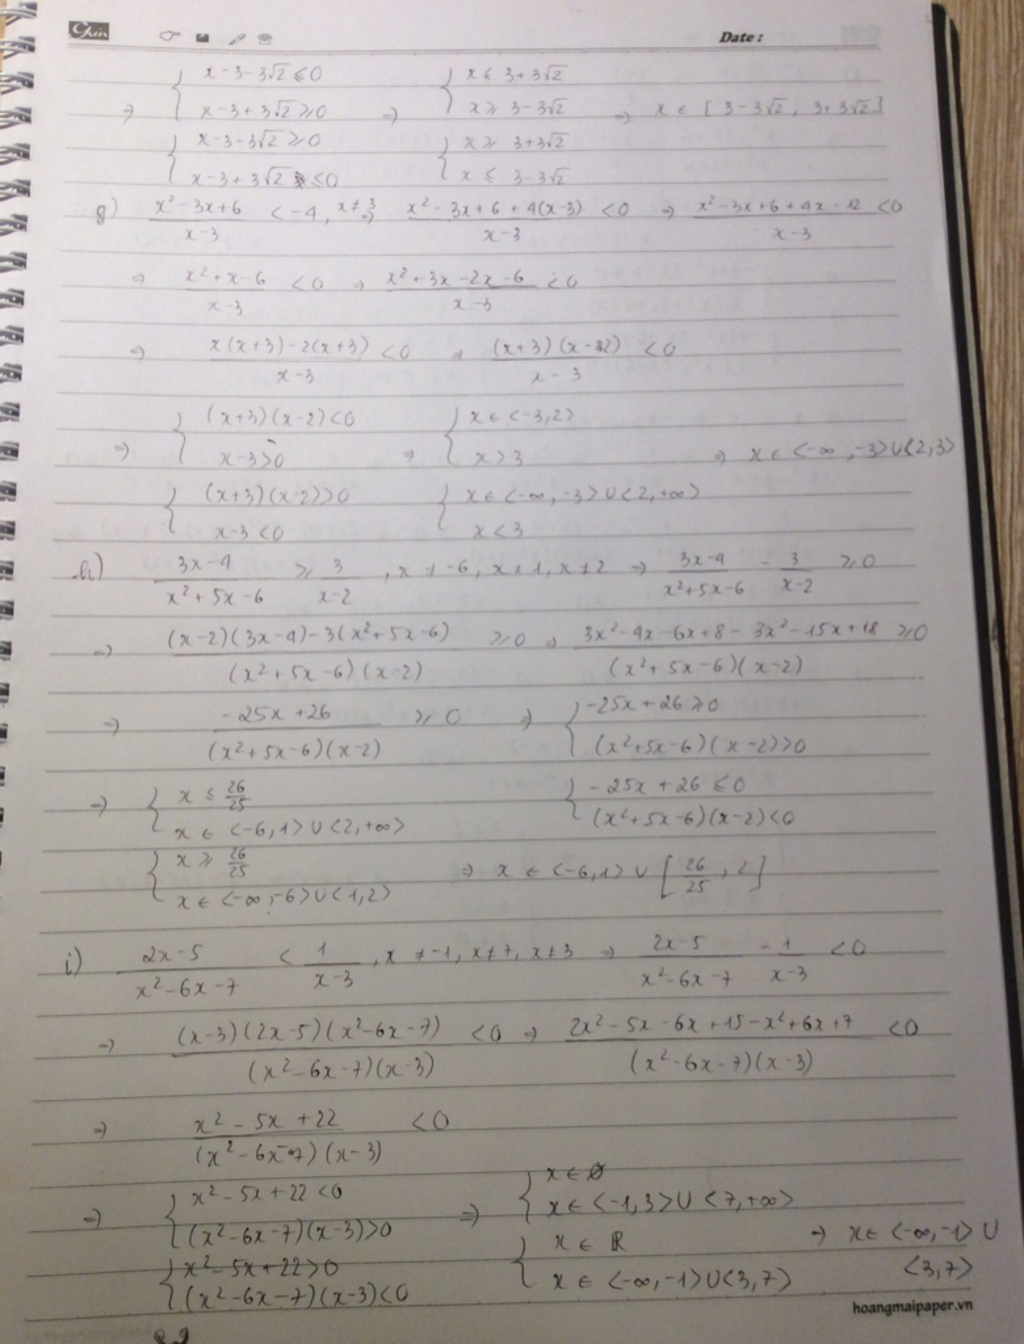 Chin Date :
{ x - 3 - 3√2 ≤ 0 { x ≤ 3 + 3√2
⇒ { x - 3 + 3√2 ≥ 0 ⇒ { x ≥ 3 - 3√2 ⇒ x ∈ [ 3 - 3√2, 3 + 3√2 ]
{ x - 3 - 3√2 ≥ 0 { x ≥ 3 + 3√2
{ x - 3 + 3√2 ≤ 0 { x ≤ 3 - 3√2
g) (x² - 3x + 6)/(x - 3) < -4, x ≠ 3 ⇒ (x² - 3x + 6 + 4(x - 3))/(x - 3) < 0 ⇒ (x² - 3x + 6 + 4x - 12)/(x - 3) < 0
⇒ (x² + x - 6)/(x - 3) < 0 ⇒ (x² + 3x - 2x - 6)/(x - 3) < 0
⇒ (x(x + 3) - 2(x + 3))/(x - 3) < 0 ⇒ ((x + 3)(x - 2))/(x - 3) < 0
{ (x + 3)(x - 2) < 0 { x ∈ <-3, 2>
⇒ { x - 3 > 0 ⇒ { x > 3 ⇒ x ∈ <-∞, -3> ∪ <2, 3>
{ (x + 3)(x - 2) > 0 { x ∈ <-∞, -3> ∪ <2, +∞>
{ x - 3 < 0 { x < 3
h) (3x - 4)/(x² + 5x - 6) ≥ 3/(x - 2), x ≠ -6, x ≠ 1, x ≠ 2 ⇒ (3x - 4)/(x² + 5x - 6) - 3/(x - 2) ≥ 0
⇒ ((x - 2)(3x - 4) - 3(x² + 5x - 6))/((x² + 5x - 6)(x - 2)) ≥ 0 ⇒ (3x² - 4x - 6x + 8 - 3x² - 15x + 18)/((x² + 5x - 6)(x - 2)) ≥ 0
⇒ (-25x + 26)/((x² + 5x - 6)(x - 2)) ≥ 0 ⇒ { -25x + 26 ≥ 0
{ (x² + 5x - 6)(x - 2) > 0
⇒ { x ≤ 26/25 { -25x + 26 ≤ 0
{ x ∈ <-6, 1> ∪ <2, +∞> { (x² + 5x - 6)(x - 2) < 0
{ x ≥ 26/25 ⇒ x ∈ <-6, 1> ∪ [ 26/25, 2 ]
{ x ∈ <-∞, -6> ∪ <1, 2>
i) (2x - 5)/(x² - 6x - 7) < 1/(x - 3), x ≠ -1, x ≠ 7, x ≠ 3 ⇒ (2x - 5)/(x² - 6x - 7) - 1/(x - 3) < 0
⇒ ((x - 3)(2x - 5)(x² - 6x - 7))/((x² - 6x - 7)(x - 3)) < 0 ⇒ (2x² - 5x - 6x + 15 - x² + 6x + 7)/((x² - 6x - 7)(x - 3)) < 0
⇒ (x² - 5x + 22)/((x² - 6x - 7)(x - 3)) < 0
⇒ { x² - 5x + 22 < 0 ⇒ { x ∈ ∅
{ (x² - 6x - 7)(x - 3) > 0 { x ∈ <-1, 3> ∪ <7, +∞>
{ x² - 5x + 22 > 0 { x ∈ ℝ ⇒ x ∈ <-∞, -1> ∪
{ (x² - 6x - 7)(x - 3) < 0 { x ∈ <-∞, -1> ∪ <3, 7> <3, 7>
hoangmaipaper.vn